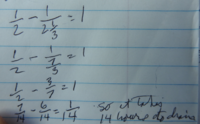 1/2 - 1/2 1/3 = 1
1/2 - 1/7/3 = 1
1/2 - 3/7 = 1
7/14 - 6/14 = 1/14 so it takes
14 hours to drain